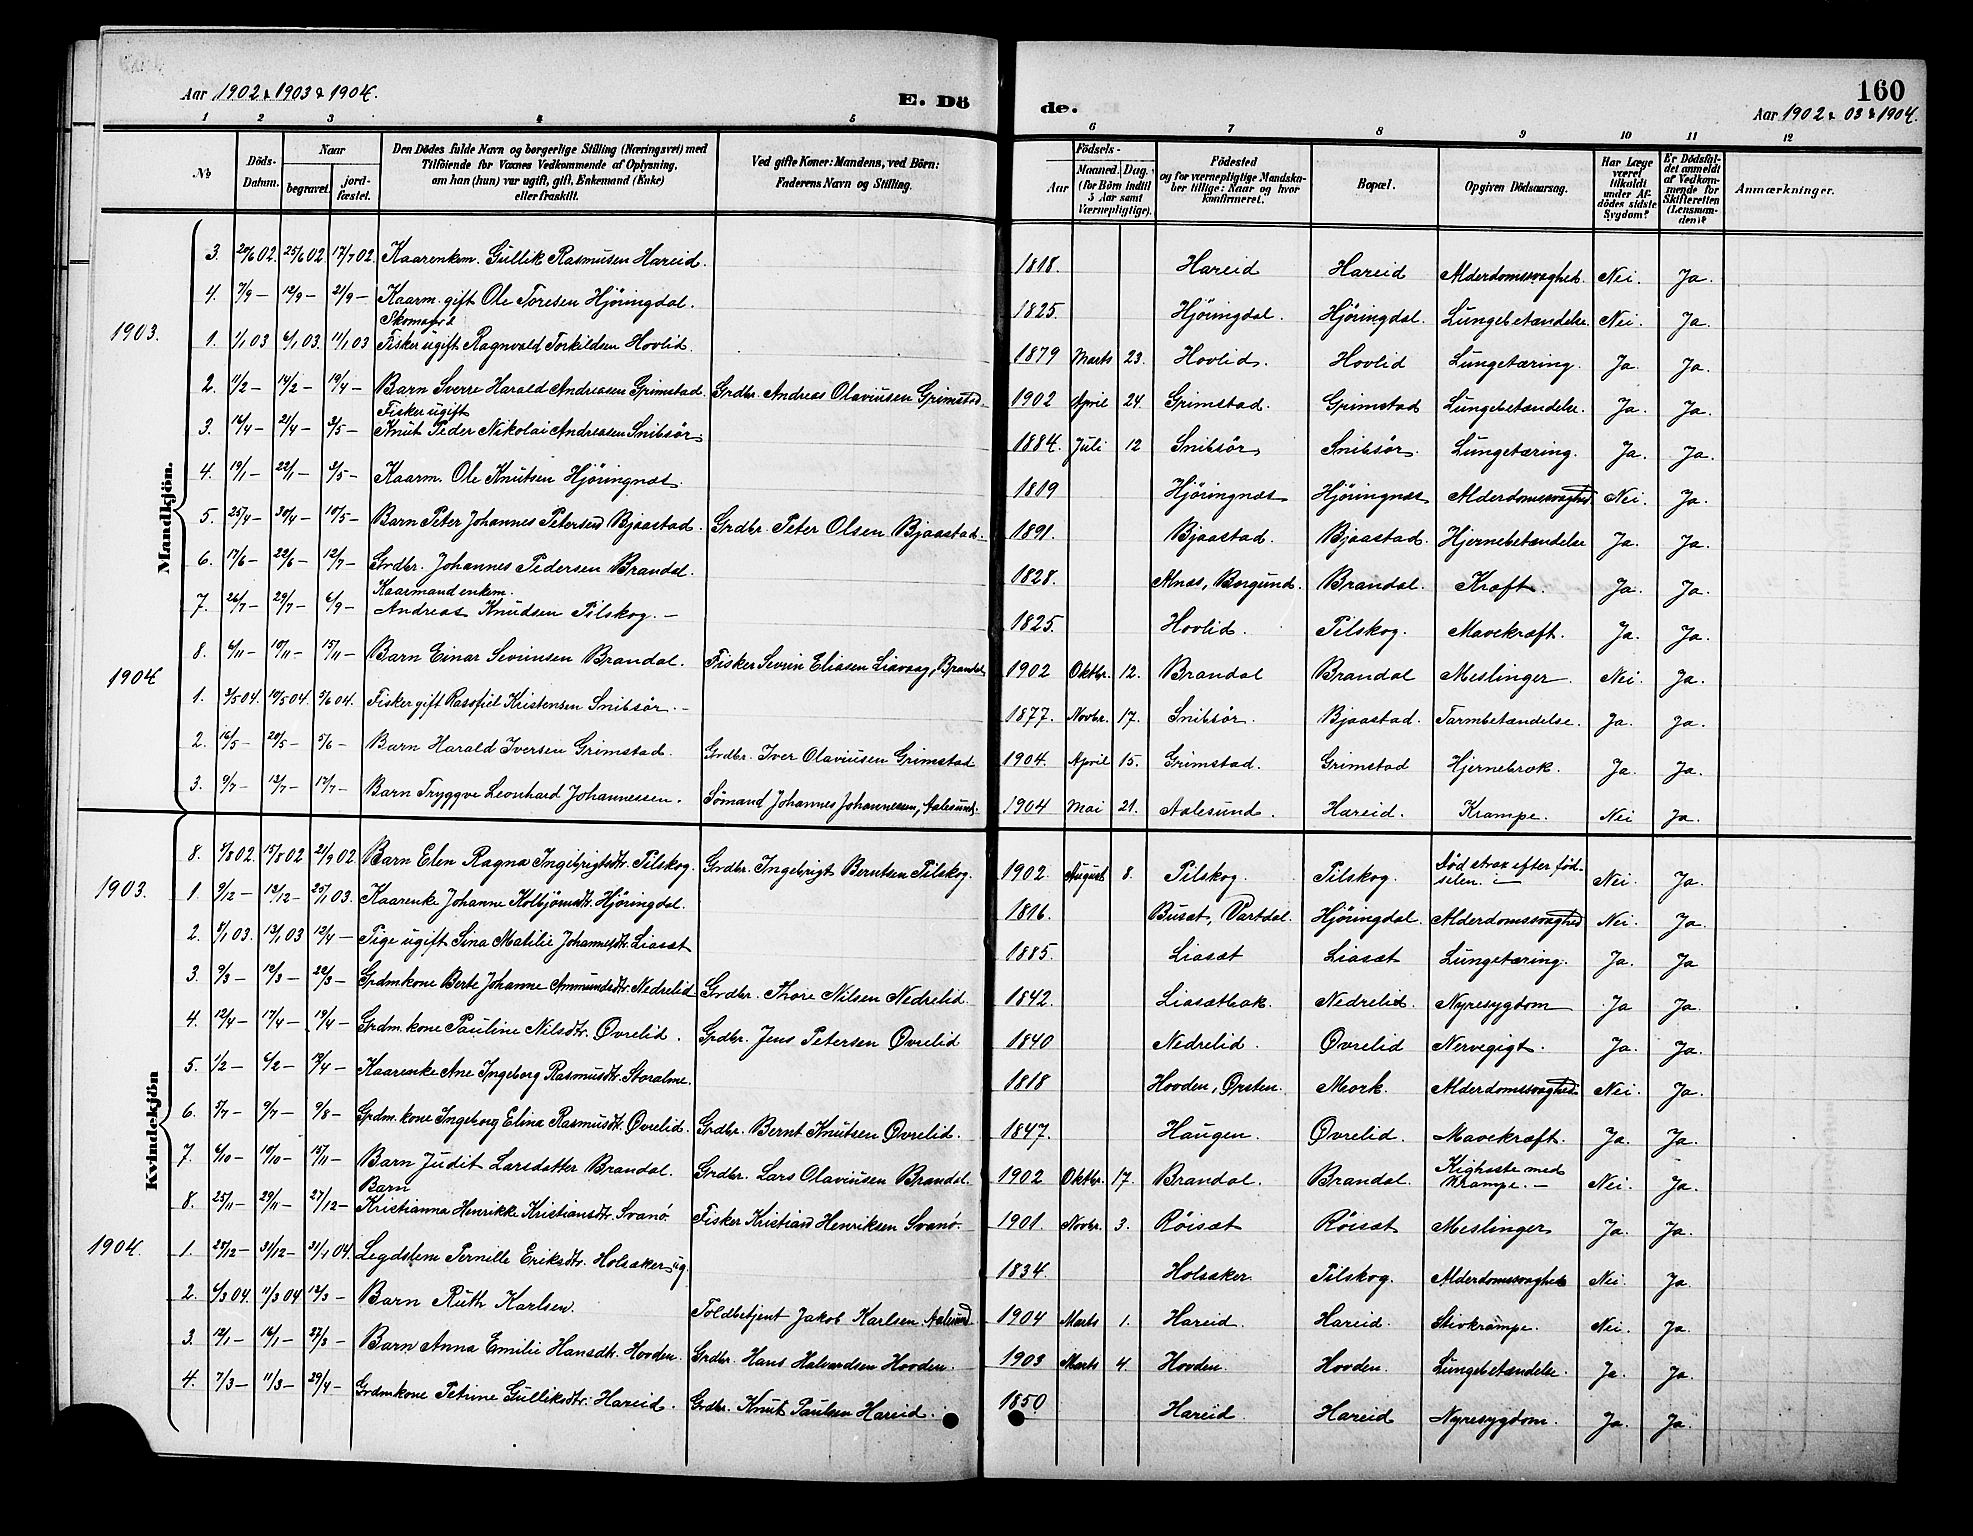 Aar 1902 & 1903 & 1904.
E. Dö
de.
160
Aar 1902 & 03 & 1904.
1 2 3 4 5 6 7 8 9 10 11 12
No
Döds-Datum.
Naar
begravet.
jordfæstet.
Den Dödes fulde Navn og borgerlige Stilling (Næringsvei) med
Tilföiende for Voxnes Vedkommende af Oplysning,
om han (hun) var ugift, gift, Enkemand (Enke)
eller fraskilt.
Ved gifte Koner: Mandens, ved Börn:
Faderens Navn og Stilling.
Födsels-
Aar
Maaned. Dag.
(for Börn indtil
5 Aar samt
Værnepligtige).
Födested
og for værnepligtige Mandskaber tillige: Naar og hvor
konfirmeret.
Bopæl.
Opgiven Dödsaarsag.
Har Læge
været
tilkaldt
under Afdödes sidste
Sygdom?
Er Dödsfaldet anmeldt
af Vedkommende for
Skifteretten
(Lensmanden)?
Anmærkninger.
Mandkjön.
3. 20/6 02 25/6 02 17/7 02 Kaarenkm. Gullik Rasmusen Hareid. 1818. Hareid Hareid Alderdomssvaghed. Nei. Ja.
4. 7/9 — 12/9 — 21/9 — Kaarm. gift Ole Toresen Hjøringdal. 1825. Hjøringdal. Hjøringdal. Lungebetændelse. Nei. Ja.
1903.
1. 1/1 03 6/1 03. 11/1 03 Fisker ugift Ragnvald Torkildsen Hovlid. 1879 Marts 23. Hovlid. Hovlid Lungetæring. Ja. Ja.
2. 11/2 — 14/2 — 19/4 — Barn Sverre Harald Andreasen Grimstad. Grdbr. Andreas Olaviusen Grimstad. 1902 April 24. Grimstad. Grimstad Lungebetændelse. Ja. Ja.
Fisker ugift
3. 16/4 — 21/4 — 3/5 — Knut Peder Nikolai Andreasen Snibsør 1884. Juli 12 Snibsør Snibsør. Lungetæring. Ja. Ja.
4. 19/1 — 22/1 — 3/5 — Kaarm. Ole Knutsen Hjøringnæs. 1819 Hjøringnæs Hjøringnæs Alderdomssvaghed Nei. Ja.
5. 25/4 — 30/4 — 10/5 — Barn Peter Johannes Petersen Bjaastad. Grdbr. Peter Olsen Bjaastad. 1891. Bjaastad. Bjaastad. Hjernebetændelse Ja. Ja.
6. 17/6 — 22/6 — 12/7 — Grdbr. Johannes Pedersen Brandal. 1828. Alnæs, Borgund. Brandal. Kræft. Ja. Ja.
Kaarmand enkem.
7. 26/7 — 29/7 — 6/9 — Andreas Knudsen Pilskog. — 1825. Hovlid. Pilskog. Mavekræft. Ja. Ja.
8. 6/11 — 10/11 — 15/11 — Barn Einar Sevrinsen Brandal. Fisker Sevrin Eliasen Liavaag, Brandal 1902 Oktbr. 12. Brandal Brandal Meslinger. Nei. Ja.
1904
1. 3/5 04. 10/5 04. 5/6 04. Fisker gift Rassfiel Kristensen Snibsør. — 1877. Novbr. 17. Snibsør. Bjaastad. Tarmbetændelse. Ja. Ja.
2. 16/5 — 20/5 — 5/6 — Barn Harald Iversen Grimstad. Grdbr. Iver Olaviusen Grimstad 1904. April 15. Grimstad. Grimstad Hjernebrok. Ja. Ja.
3. 9/7 — 13/7 — 17/7 — Barn Tryggve Leonhard Johannessen. Sømand Johannes Johannessen, Aalesund. 1904 Mai 21. Aalesund. Hareid. Krampe. Nei Ja.
Kvindekjön
8. 7/8 02. 15/8 02 21/9 02 Barn Elen Ragna Ingebrigtsdtr. Pilskog. Grdbr. Ingebrigt Berntsen Pilskog. 1902 August 8. Pilskog. Pilskog. Død strax efter fødselen. — Nei. Ja.
1903.
1. 9/12 — 13/12 — 25/1 03. Kaarenke Johanne Kolbjørnsdtr. Hjøringdal. 1816. Busæt, Vartdal. Hjøringdal. Alderdomssvaghed Nei. Ja
2. 8/1 03. 13/1 03 12/4 — Pige ugift Sina Matilie Johannesdtr. Liasæt 1885. Liasæt Liasæt Lungetæring. Ja. Ja
3. 9/3 — 12/3 — 22/3 — Grdmkone Berte Johanne Ammundsdtr. Nedrelid Grdbr. Thore Nilsen Nedrelid. 1842. Liasætbak. Nedrelid. Nyresygdom Ja Ja.
4. 12/4 — 17/4 — 19/4 — Grdm. kone Pauline Nilsdtr. Øvrelid. Grdbr. Jens Petersen Øvrelid 1840 Nedrelid. Øvrelid Nervegigt. Ja. Ja.
5. 1/2 — 6/2 — 19/4 — Kaarenke Ane Ingeborg Rasmusdtr. Storalme. 1818 Hovden, Ørsten. Mork. Alderdomssvaghed Nei. Ja.
6. 5/7 — 9/7 — 9/8 — Grdm. kone Ingeborg Elina Rasmusdtr. Øvrelid. Grdbr. Bernt Knutsen Øvrelid. 1847. Haugen. Øvrelid. Mavekræft. Ja. Ja.
7. 6/10 — 10/10 — 15/11 — Barn Judit Larsdatter Brandal. Grdbr. Lars Olaviusen Brandal. 1902 Oktbr. 17. Brandal. Brandal. Kighoste med Krampe. — Nei. Ja.
Barn
8. 25/11 — 29/11 — 27/12 — Kristianna Henrikke Kristiansdtr. Svanø. Fisker Kristian Henriksen Svanø. 1901. Novbr. 3. Røisæt Røisæt Meslinger Ja. Ja.
1904.
1. 25/12 — 31/12 — 31/1 04. Legdslem Pernille Eriksdtr. Holsaker, ug. 1834. Holsaker. Pilskog. Alderdomssvaghed Nei. Ja.
2. 6/3 04. 11/3 04 13/3 — Barn Ruth Karlsen. Toldbetjent Jakob Karlsen Aalesund 1904 Marts 1. Hareid. Hareid. Stivkrampe. Nei. Ja.
3. 12/1 — 16/1 — 27/3 — Barn Anna Emilie Hansdtr. Hovden. Grdbr. Hans Halvardsen Hovden. 1903 Marts 4. Hovden. Hovden. Lungebetændelse. Ja. Ja.
4. 7/3 — 11/3 — 29/4 — Grdmkone Petrine Gulliksdtr. Hareid. Grdbr. Knut Paulsen Hareid. 1850 Hareid. Hareid Nyresygdom. Ja. Ja.